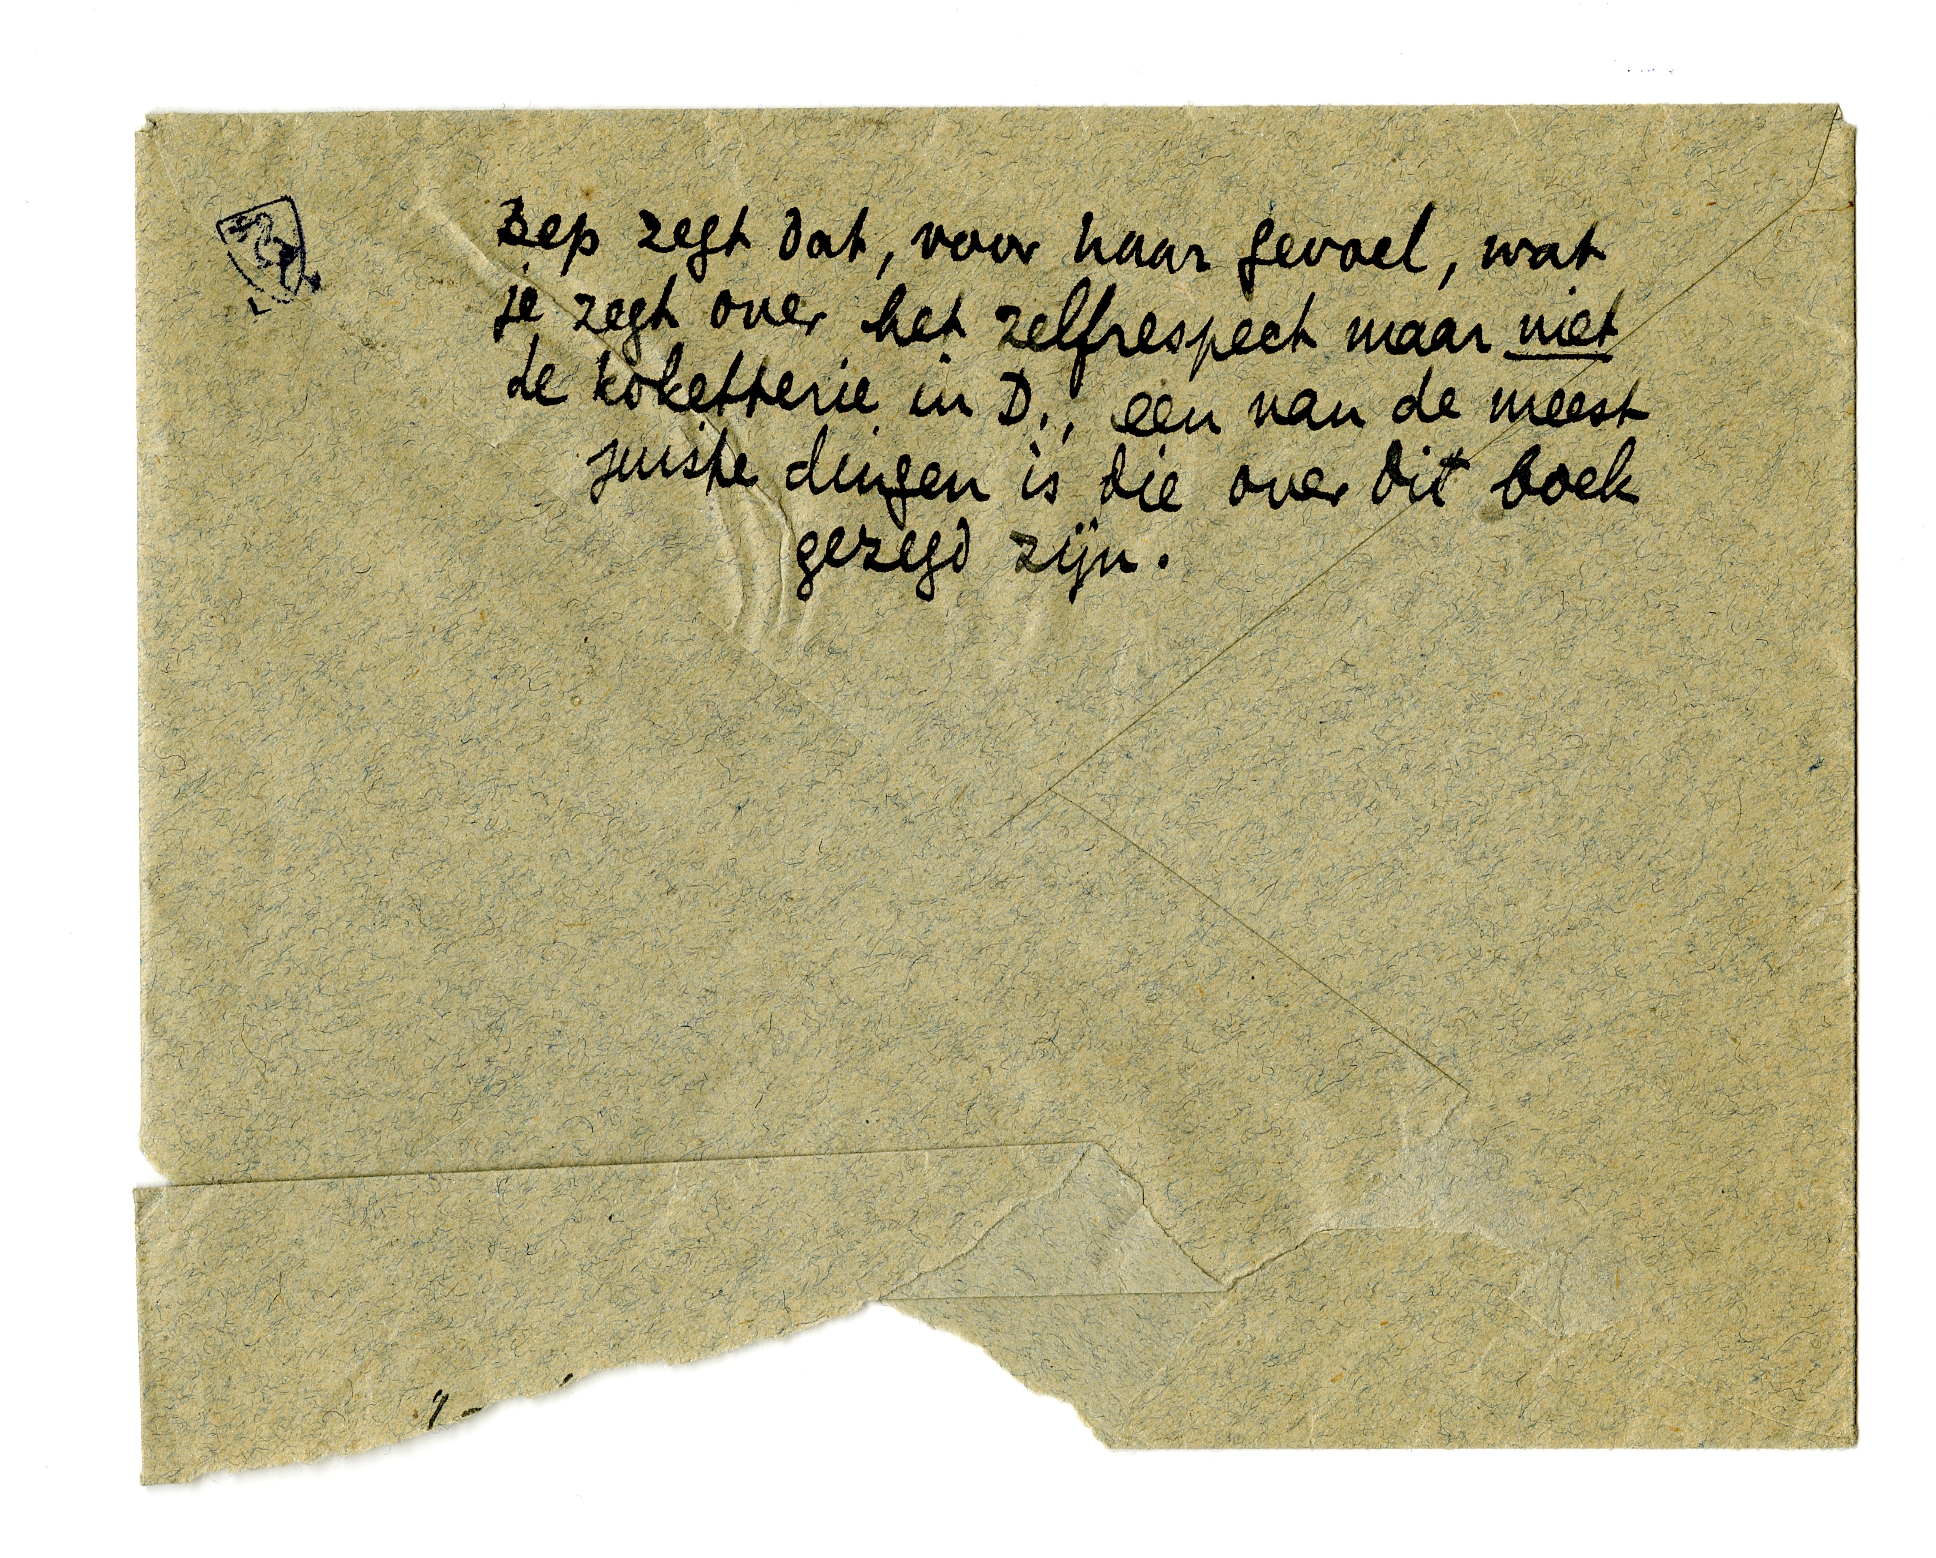 Bep zegt dat, voor haar gevoel, wat
je zegt over het zelfrespect maar niet
de koketterie in D., een van de meest
juiste dingen is die over dit boek
gezegd zijn.